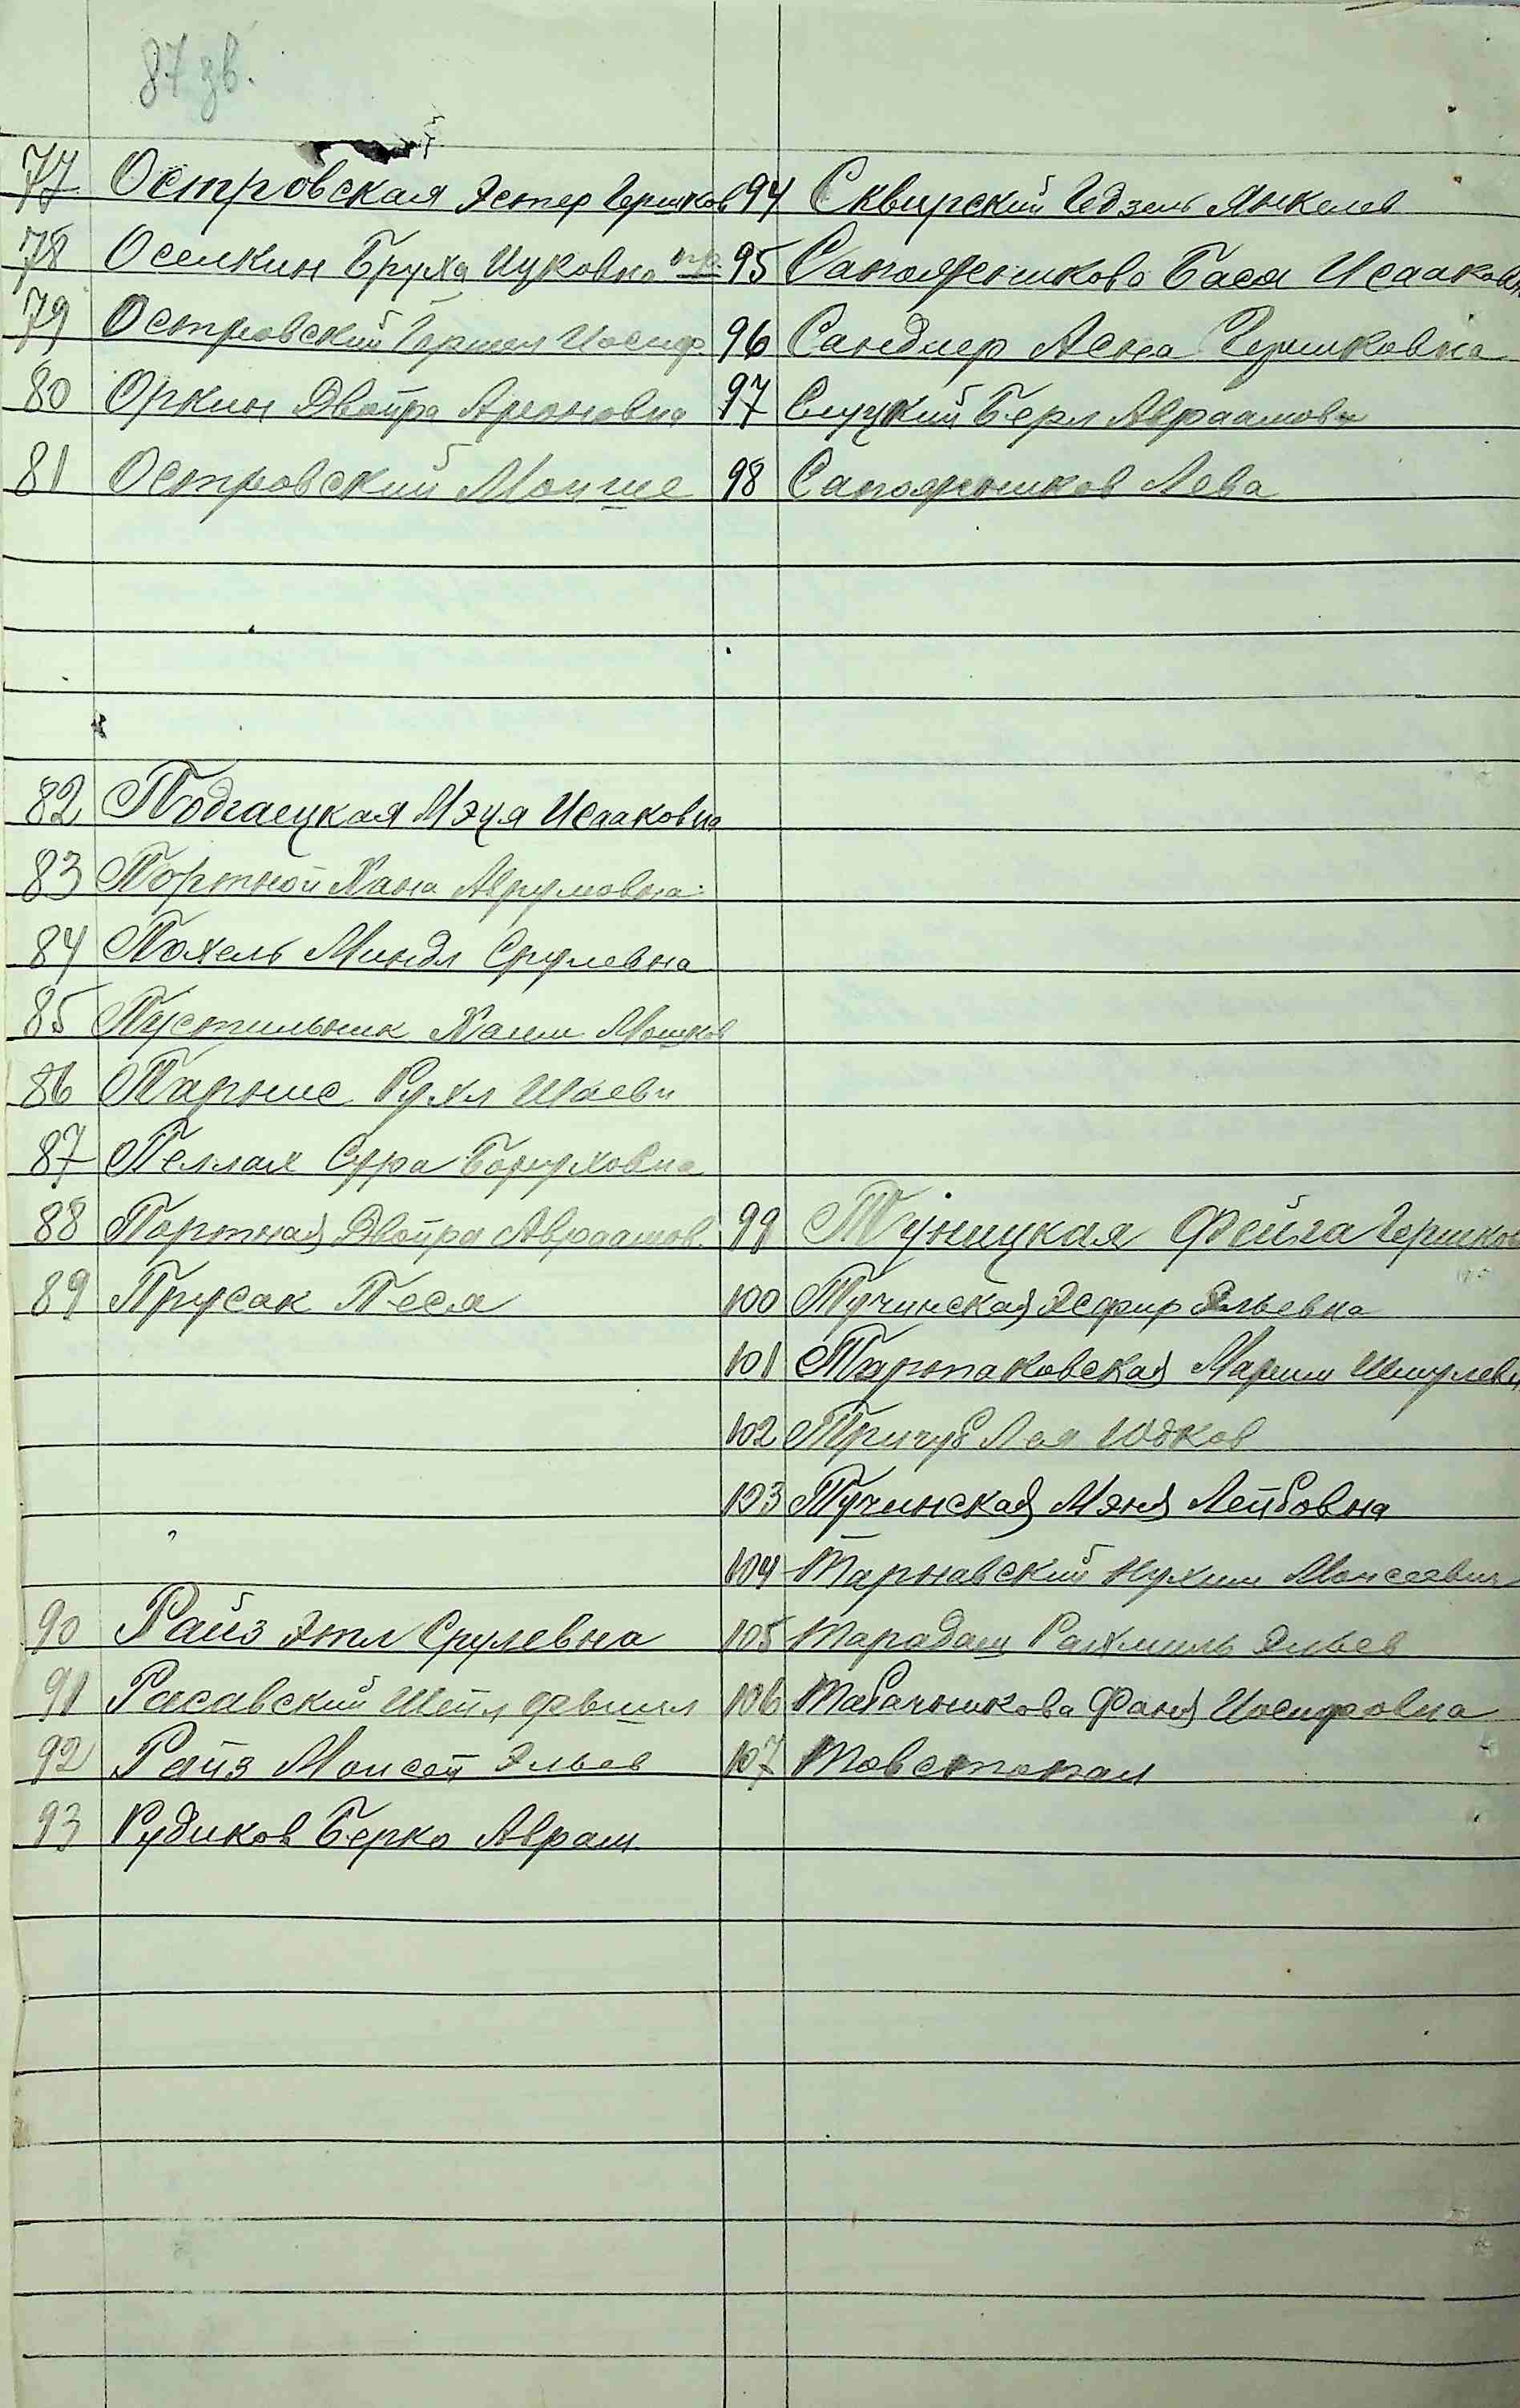 87 зв.
77 Островская Эстер Гершков
78 Оселкин Бруха Ицковна
79 Островский Гершел Иосиф
80 Оркин Двойра Ароновна
81 Островский Мойше
82 Подгаецкая Мэця Исааковна
83 Портной Хана Аврумовна
84 Похель Миндл Срулевна
85 Пустильник Хаим Мошков
86 Парнис Рухл Шаевн
87 Пеллах Сура Боруховна
88 Портная Двойра Авраамов.
89 Прусак Песя
90 Райз Этл Срулевна
91 Расавский Шейл Фвишл
92 Райз Моисей Эльев
93 Рудиков Берко Аврам.
94 Сквирский Гедзель Янкелев
95 Сапожникова Бася Исааковн
96 Сандлер Асна Гершковна
97 Слуцкий Берл Авраамов
98 Сапожников Лева
99 Туницкая Фейга Гершков
100 Тучинская Эсфир Эльевна
101 Тартаковская Мариям Шмулевн
102 Тричуб Лея Юдков
103 Тучинская Мэня Лейбовна
104 Тарнавский Нухим Моисеевич
105 Тарадаш Рахмиль Эльев
106 Табачникова Фаня Иосифовна
107 Товстопал